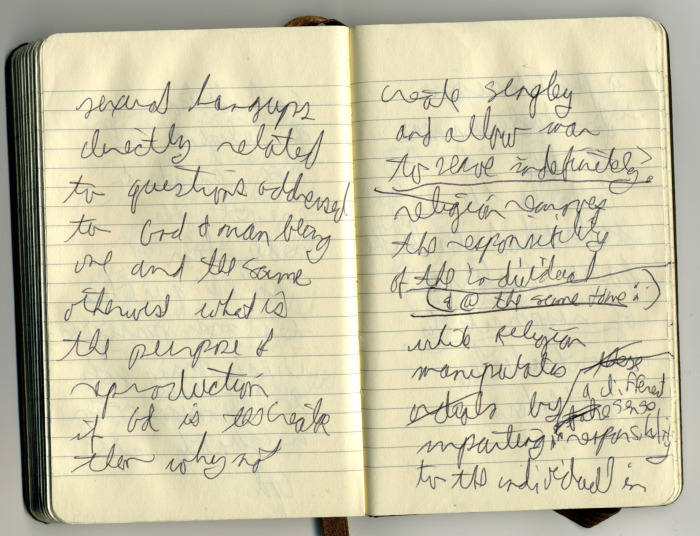 sexual hangups
directly related
to questions addressed
to God & man being
one and the same
otherwise what is
the purpose of
reproduction
if God is to create
then why not
create singley
and allow man
to serve indefinitely?
religion removes
the responsibility
of the individual
(& @ the same time :)
while religion
manipulates these
by a different
false sense
imparting in responsibility
to the individual in